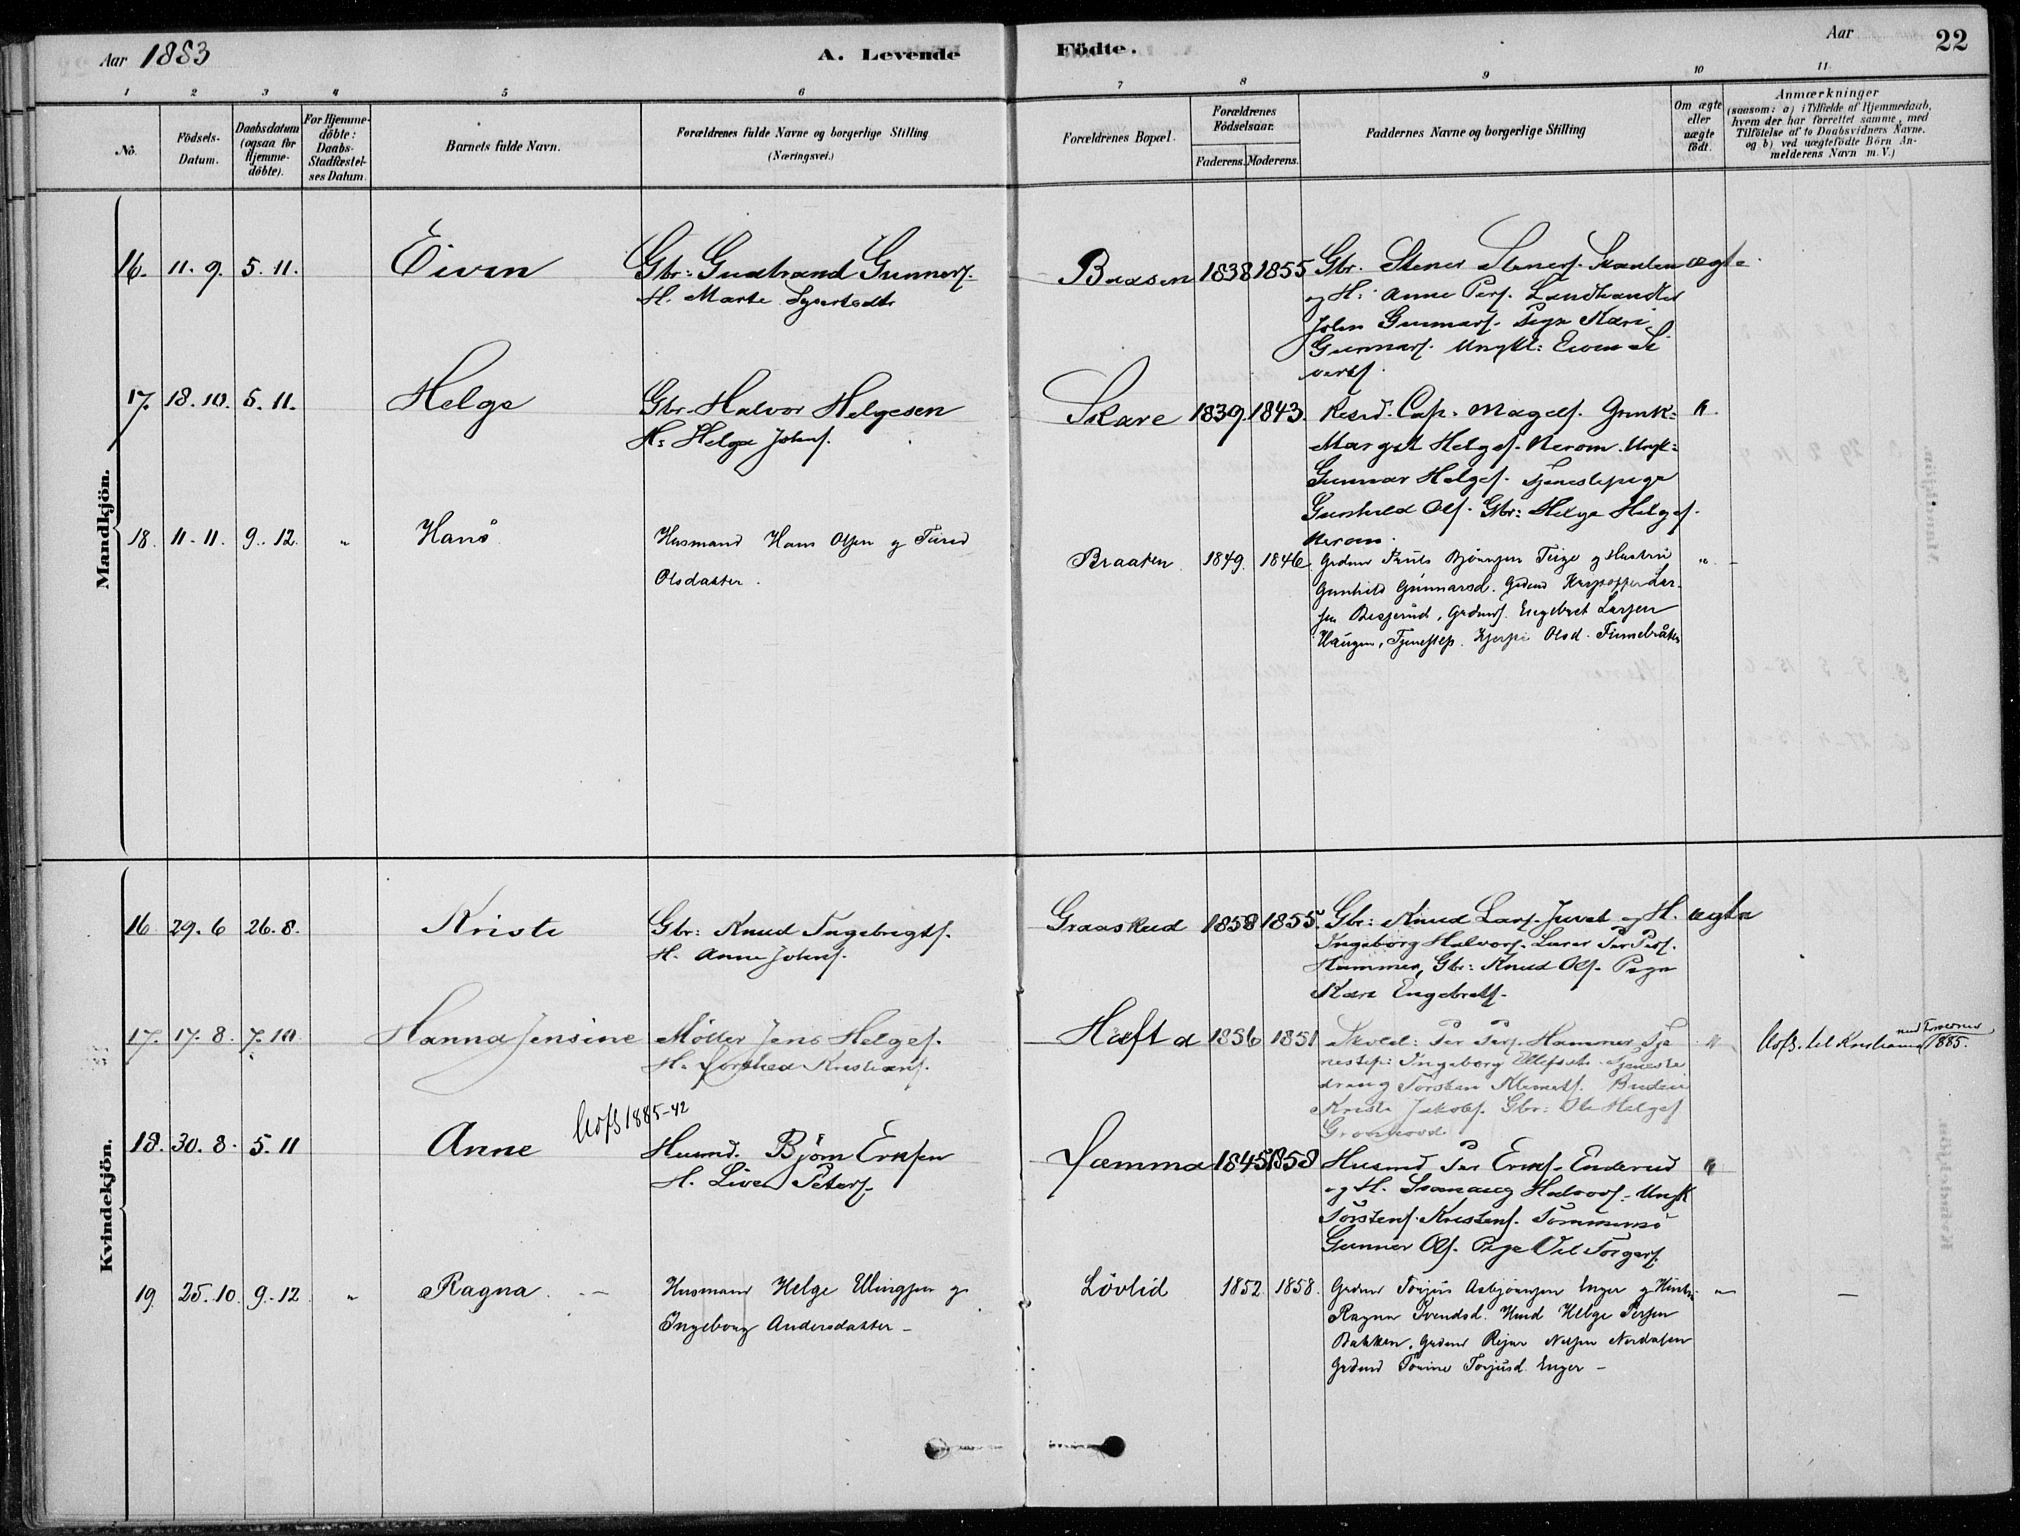 Aar 1883
A. Levende
Födte.
Aar
22
1 2 3 4 5 6 7 8 9 10 11
No.
Födsels-Datum.
Daabsdatum (ogsaa for Hjemme-döbte).
For Hjemme-döbte: Daabs-Stadfæstel-ses Datum.
Barnets fulde Navn.
Forældrenes fulde Navne og borgerlige Stilling
(Næringsvei.)
Forældrenes Bopæl.
Forældrenes Födselsaar.
Faderens. Moderens.
Faddernes Navne og borgerlige Stilling
Om ægte eller uægte födt.
Anmærkninger
(saasom: a) i Tilfælde af Hjemmedaab,
hvem der har forrettet samme, med
Tilföielse af to Daabsvidners Navne.
og b) ved uægtefödte Börn An-
melderens Navn m. V.)
Mandkjön.
16. 11. 9. 5. 11. Eiven Gbr: Gulbrand Gunners.
H. Marte
Baasen 1838 1855 Gbr. Stener Steners. ægte
og H: Anne Pers. Landhandler
John Gunnars. Pige Kari
Gunnars. Ungkl: Eiven Si
verts.
17. 18. 10. 5. 11. Helge Gbr. Halvor Helgesen
H: Helga Johns.
Skare 1839. 1843. Resid. Cap. Magels.
Margit Helges. Nerom. Ungk:
Gunnar Helges. Tjenestepige
Gunhild Ols. Gbr: Helge Helges.
Nerom.
18. 11. 11. 9. 12. " Hans Husmand Hans Olsen og Turid
Olsdatter.
Braaten 1849. 1846. Grdmr Nils Bjørnsen Teige og Hustru " -
Gunhild Gunnarsd. Grdmd Kristoffer Lar-
sen Besjerud, Grdmds. Engebret Larsen
Haugen, Tjenestep. Kjersti Olsd. Finnebråten
Kvindekjön.
16 29. 6 26. 8. Kristi Gbr: Knud Ingebrigts.
H. Anne Johns.
Graaskud 1858 1855. Gbr: Knud Lars. Juvet og H. ægte
Ingeborg Halvors. Lærer Per Pers.
Hammer, Gbr: Knud Ols. Pige
Kari Engebrets.
17. 17. 8. 7. 10. Hanna Jensine Møller Jens Helges.
H. Kristians.
Hafta 1856 1851 Skold: Per Pers. Hammer Tje
nestep: Ingeborg Tjeneste
dreng Torsten Klemets.
Kristi Jakobs. Gbr: Ole Helges
til Kristiania 1885.
18. 30. 8. 5. 11 Anne 1885-42
Husmd. Bjørn Eriksen
H. Live Peters.
Dæmma 1845 1858 Husmd Per Eriks. Enderud
og H. Halvors. Ungk
Torstens. Kristens.
Gunner Ols. Pige Torgers.
19. 25. 10 9. 12 " Ragna. - Husmand Helge Ellingsen og
Ingeborg Andersdatter -
Lövlid 1852 1858. Grdmr Torjus Asbjørnsen Enger og Hustru "
Ragna Svendsd. Husmd Helge Persen
Bakken, Grdmr Reiar Nilsen Nordalen
Grdmd Torine Torjusd. Enger -